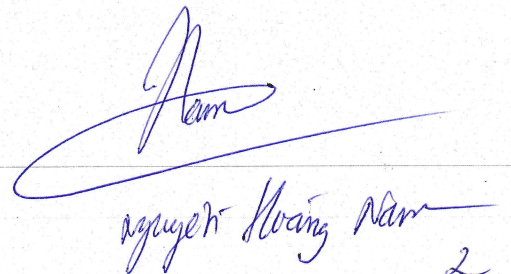 Nam
Nguyễn Hoàng Nam
2